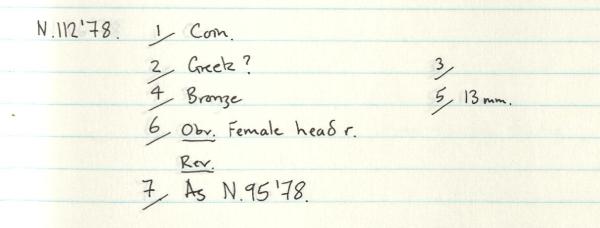 N.112'78. 1/ Coin.
2/ Greek? 3/
4/ Bronze 5/ 13mm.
6/ Obv. Female head r.
Rev.
7/ As N.95'78.